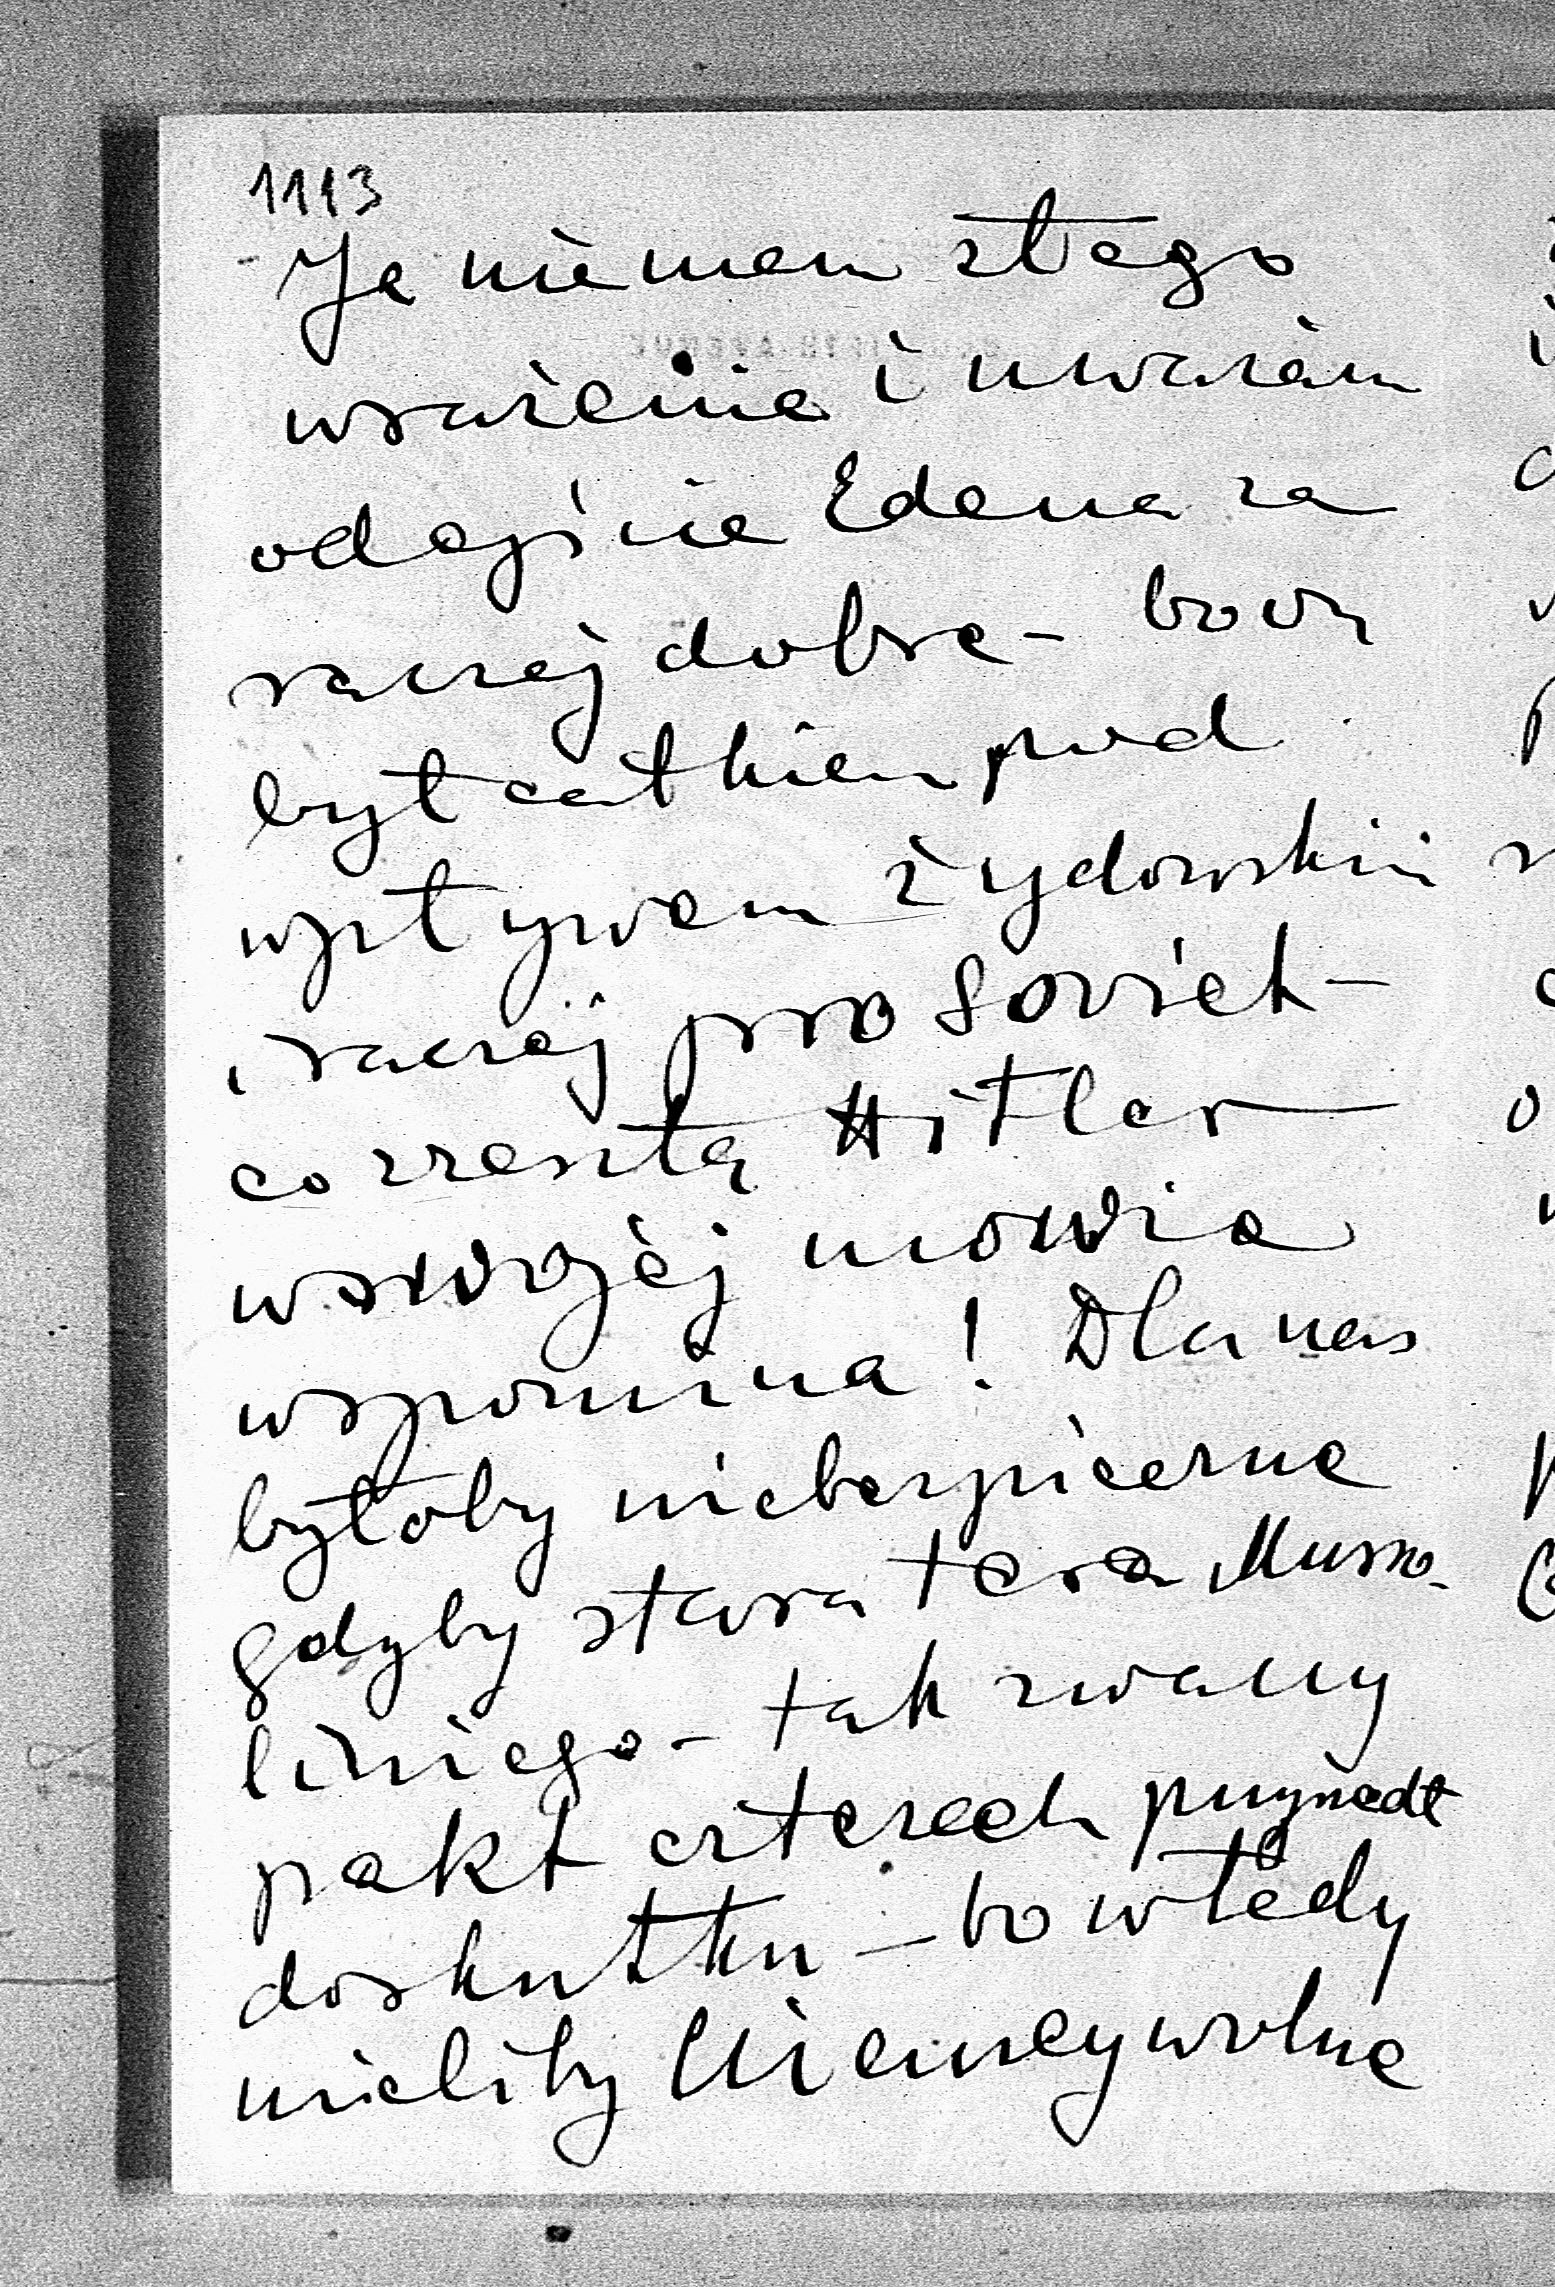 1113
Ja nie mam złego
wrażenia i uważam
odejście Edena za
raczej dobre - bo on
był całkiem pod
wpływem żydowskim
i raczej pro Soviet -
co zresztą Hitler
w swojej mowie
wspomina! Dla nas
byłoby niebezpieczne
gdyby stara teza Musso-
liniego - tak zwany
pakt czterech przyszedł
do skutku - bo wtedy
mieliby Niemcy wolne